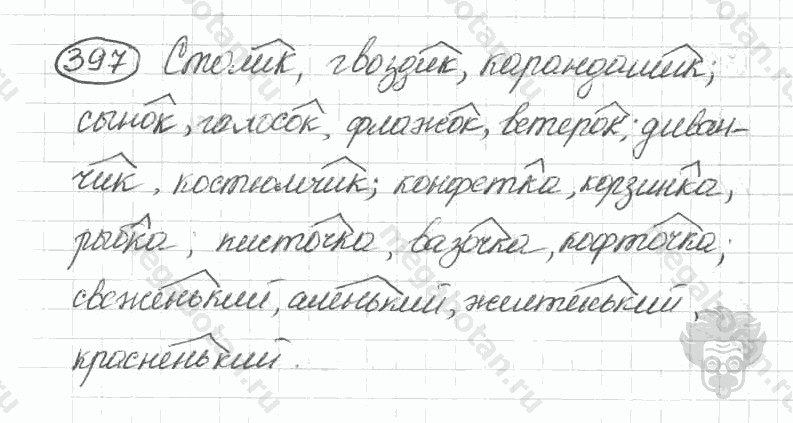 397 Столик, гвоздик, карандашик;
сынок, голосок, флажок, ветерок; диван-
чик, костюмчик; конфетка, корзинка,
рыбка; кисточка, вазочка, кофточка;
свеженький, аленький, желтенький,
красненький.
megabotan.ru